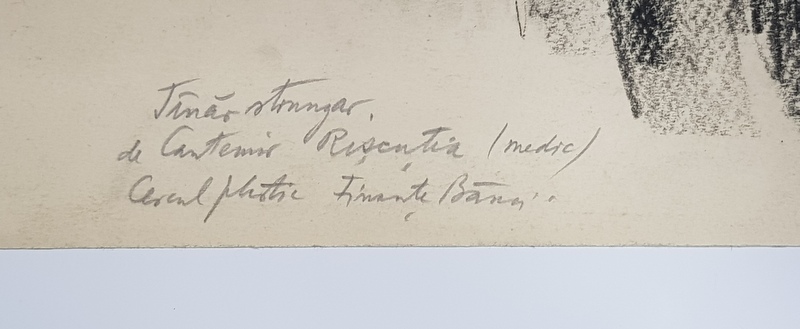 Tînăr strungar.
de Cantemir Rișcuția (medic)
Cercul plastic Finanțe Bănci.